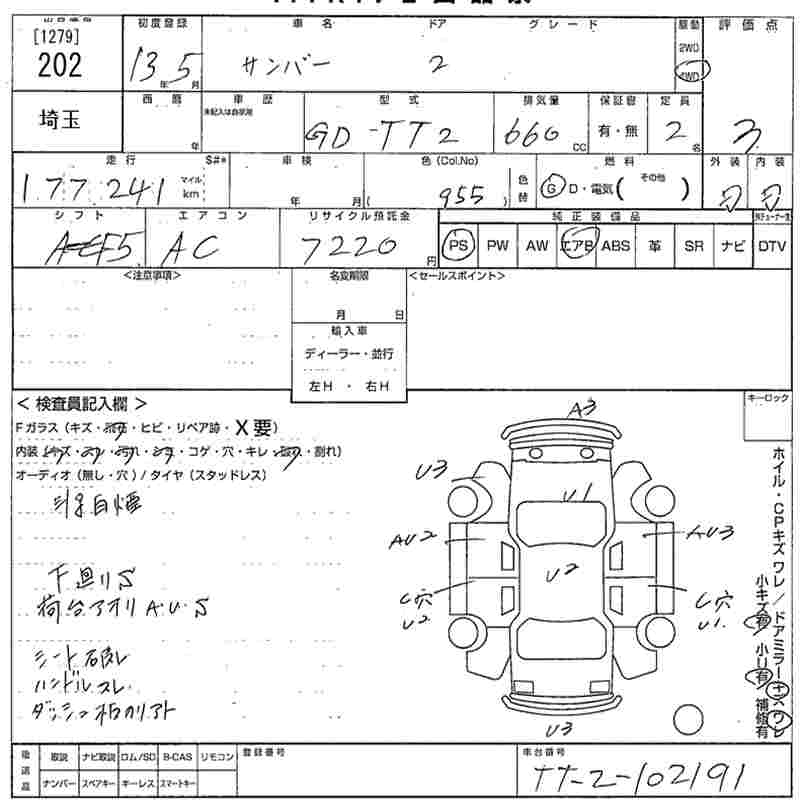 [1279]
202
初度登録 車名 ドア グレード 駆動 評価点
13年 5月 サンバー 2 2WD 4WD
埼玉
西暦 車歴 型式 排気量 保証書 定員
年 未記入は自家用 GD-TT2 660cc 有・無 2名 3
走行 S#* 車検 色(Col.No) 色替 燃料 外装 内装
177241 マイル km 年 月 ( 955 ) G D・電気( その他 )
シフト エアコン リサイクル預託金 純正装備品
F5 AC 7220円 PS PW AW エアB ABS 革 SR ナビ DTV
<注意事項> 名変期限 <セールスポイント>
月 日
輸入車
ディーラー・並行
左H ・ 右H
<検査員記入欄> キーロック
Fガラス(キズ・飛石・ヒビ・リペア跡・X要)
内装(キズ・スリ・汚れ・シミ・コゲ・穴・キレ・割れ)
オーディオ(無し・穴)/タイヤ(スタッドレス)
白煙
下廻りS
荷台アオリA.U.S
シート破レ
ハンドルスレ
ダッシュ
A3
U3
U1
AU2
AU3
U2
C穴 U2
C穴 U1
U3
ホイル・CPキズ ワレ/ドアミラーキズ ワレ
小キズ有 小U有 補修有
後送品 取説 ナビ取説 ロム/SD B-CAS リモコン 登録番号 車台番号
ナンバー スペアキー キーレス スマートキー TT2-102191